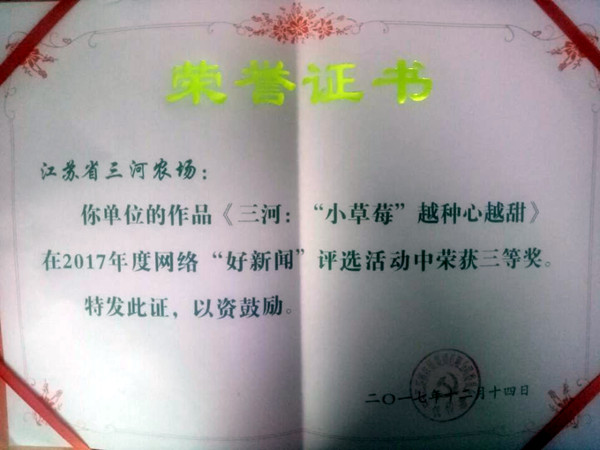 荣誉证书
江苏省三河农场：
你单位的作品《三河：“小草莓”越种心越甜》
在2017年度网络“好新闻”评选活动中荣获三等奖。
特发此证，以资鼓励。
二〇一七年十二月十四日